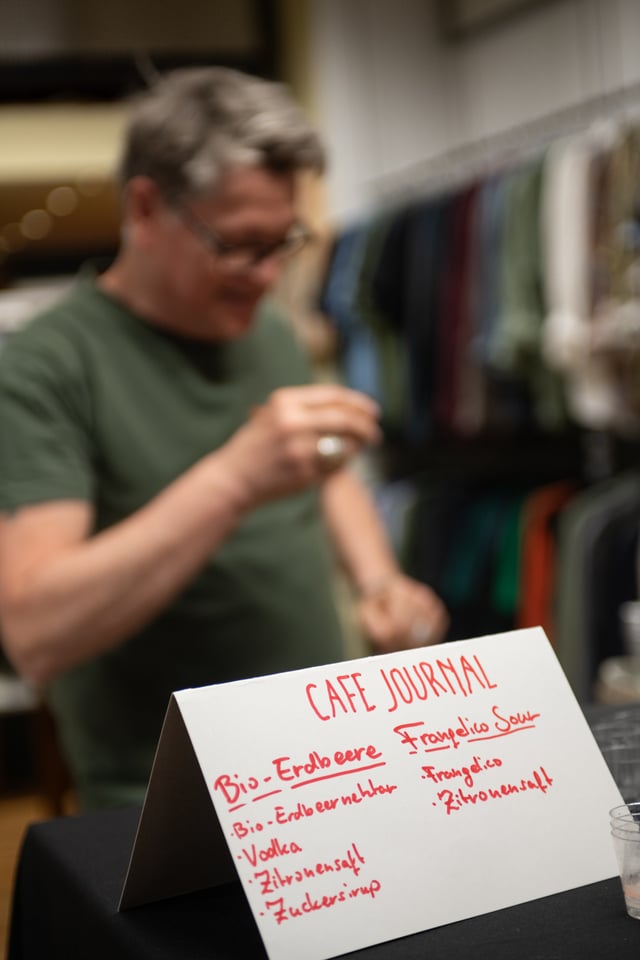 CAFE JOURNAL
Bio-Erdbeere
·Bio-Erdbeernektar
·Vodka
·Zitronensaft
·Zuckersirup
Frangelico Sour
·Frangelico
·Zitronensaft